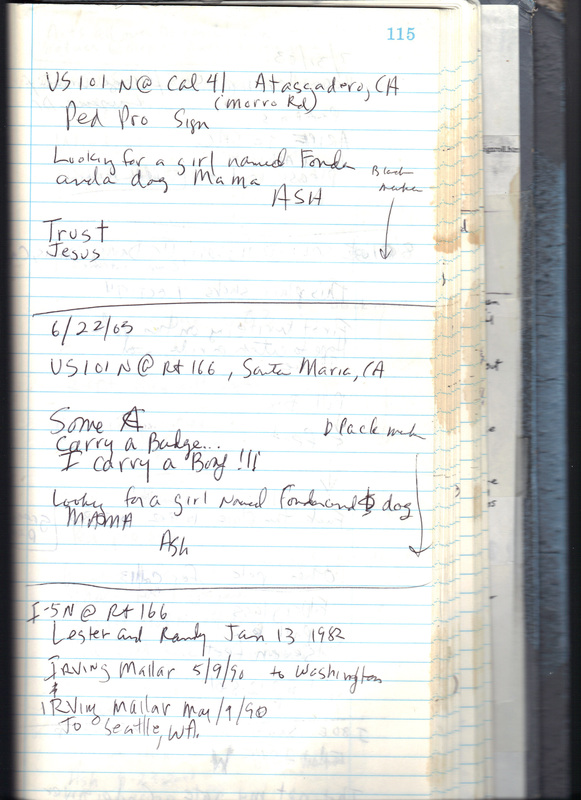 115
US 101 N @ Cal 41 Atascadero, CA
(Morro Rd)
Ped Pro Sign
Looking for a girl named Fonda
and a dog Mama
ASH
Black
marker
Trust
Jesus
6/22/05
US 101 N @ Rt 166, Santa Maria, CA
Some
Carry a Badge...
I carry a Bong !!!
black
Looking for a girl named Fonda and dog
MAMA
Ash
I-5N @ Rt 166
Lester and Randy Jan 13 1982
IRVING Mallar 5/9/90 to Washington
&
IRVing Mallar May/9/90
To Seattle, WA.